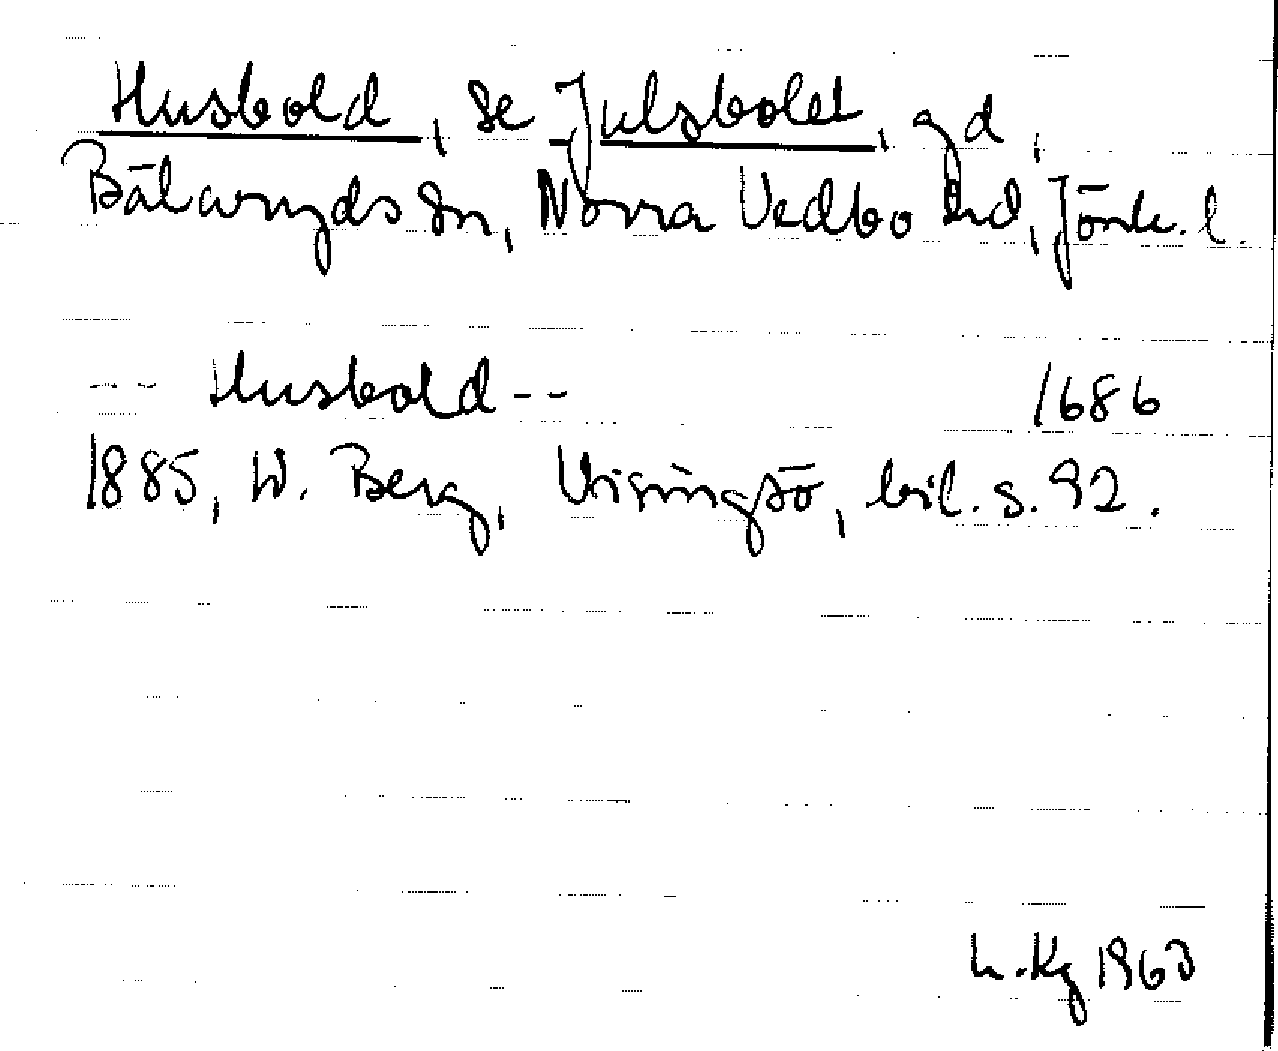 Husbold, se Julsbolet, gd,
Bälaryds sn, Norra Vedbo hd, Jönk. l.
-- Husbold -- 1686
1885, W. Berg, Visingsö, bil. s. 92.
h. Kg 1963